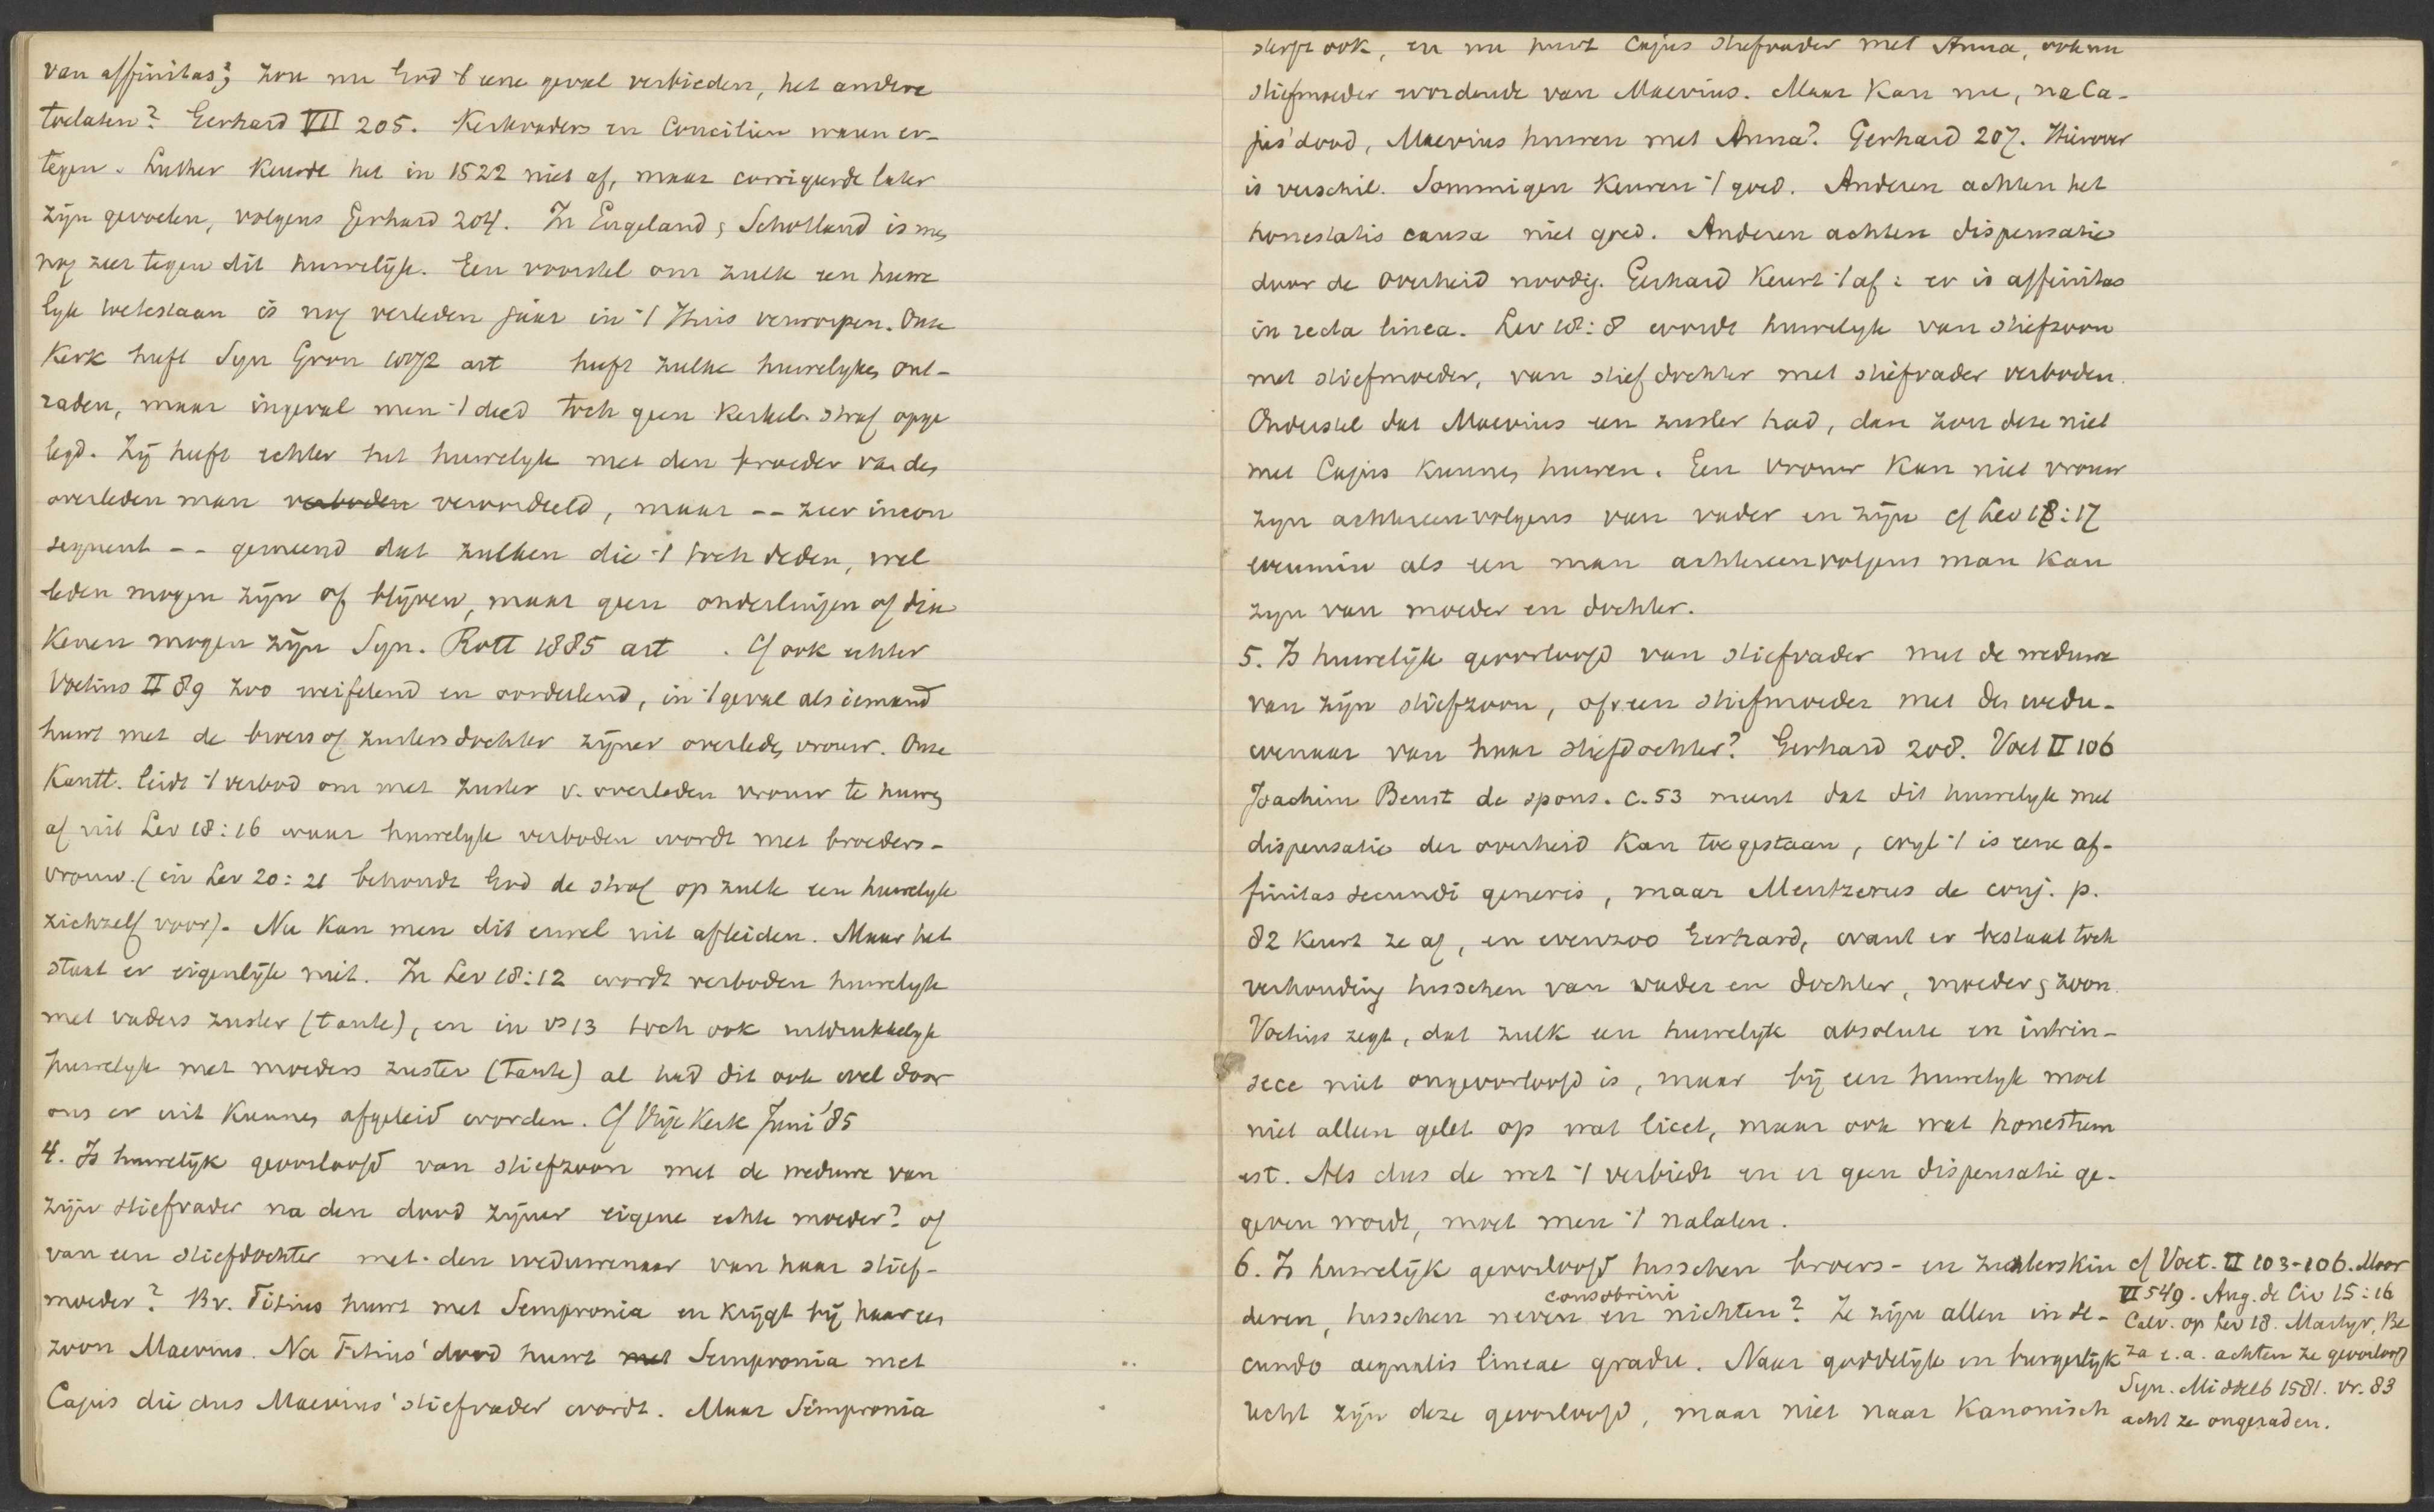 van affinitas; zou nu God 't eene geval verbieden, het andere
toelaten? Gerhard VII 205. Kerkvaders en Conciliën waren er-
tegen. Luther keurde het in 1522 niet af, maar corrigeerde later
zijn gevoelen, volgens Gerhard 204. In Engeland & Schotland is men
nog zeer tegen dit huwelijk. Een voorstel om zulk een huwe
lijk toetestaan is nog verleden jaar in 't Huis verworpen. Onze
Kerk heeft Syn Gron 1872 art heeft zulke huwelijken ont-
raden, maar ingeval men 't deed toch geen kerkel. straf opge
legd. Zij heeft echter het huwelijk met den broeder van den
overleden man verboden veroordeeld, maar -- zeer incon
sequent -- gemeend dat zulken die 't toch deden, wel
leden mogen zijn of blijven, maar geen onderlingen of dia
kenen mogen zijn Syn. Rott 1885 art . Cf ook echter
Voetius II 89 zoo weifelend en oordelend, in 't geval als iemand
huwt met de broers of zusters dochter zijner overleden vrouw. Onze
Kantt. leidt 't verbod om met zuster v. overleden vrouw te huwen
af uit Lev 18:16 waar huwelijk verboden wordt met broeders-
vrouw. (in Lev 20:21 behoudt God de straf op zulk een huwelijk
zichzelf voor). Nu kan men dit er wel uit afleiden. Maar het
staat er eigenlijk niet. In Lev 18:12 wordt verboden huwelijk
met vaders zuster (tante), en in vs 13 toch ook uitdrukkelijk
huwelijk met moeders zuster (tante) al had dit ook wel door
ons er uit kunnen afgeleid worden. Cf Vrije Kerk Juni '85
4. Is huwelijk geoorloofd van stiefzoon met de weduwe van
zijn stiefvader na den dood zijner eigene echte moeder? of
van een stiefdochter met den weduwenaar van haar stief-
moeder? Bv. Titius huwt met Sempronia en krijgt bij haar een
zoon Maevius. Na Titius' dood huwt met Sempronia met
Cajus die dus Maevius' stiefvader wordt. Maar Sempronia
sterft ook, en nu huwt Cajus stiefvader met Anna, ook nu
stiefmoeder wordende van Maevius. Maar kan nu, na Ca-
jus' dood, Maevius huwen met Anna? Gerhard 207. Hierover
is verschil. Sommigen keuren 't goed. Anderen achten het
honestatis causa niet goed. Anderen achten dispensatie
door de overheid noodig. Gerhard keurt 't af: er is affinitas
in recta linea. Lev 18:8 wordt huwelijk van stiefzoon
met stiefmoeder, van stiefdochter met stiefvader verboden.
Onderstel dat Maevius een zuster had, dan zou deze niet
met Cajus kunnen huwen. Een vrouw kan niet vrouw
zijn achtereenvolgens van vader en zijn cf Lev 18:17
evenmin als een man achtereenvolgens man kan
zijn van moeder en dochter.
5. Is huwelijk geoorloofd van stiefvader met de weduwe
van zijn stiefzoon, of een stiefmoeder met den wedu-
wenaar van haar stiefdochter? Gerhard 208. Voet II 106
Joachim Beust de spons. c. 53 meent dat dit huwelijk met
dispensatie der overheid kan toegestaan, wijl 't is eene af-
finitas secundi generis, maar Mentzerus de conj. p.
82 keurt ze af, en evenzoo Gerhard, want er bestaat toch
verhouding tusschen van vader en dochter, moeder & zoon.
Voetius zegt, dat zulk een huwelijk absolute en intrin-
sece niet ongeoorloofd is, maar bij een huwelijk moet
niet alleen gelet op wat licet, maar ook wat honestum
est. Als dus de wet 't verbiedt en er geen dispensatie ge-
geven wordt, moet men 't nalaten.
6. Is huwelijk geoorloofd tusschen broers- en zusterskin
consobrini
deren, tusschen neven en nichten? Ze zijn allen in se-
cundo aequalis lineae gradu. Naar goddelijk en burgerlijk
recht zijn deze geoorloofd, maar niet naar Kanonisch
cf Voet. II 103-106. Moor
VI 549. Aug. de Civ 15:16
Calv. op Lev 18. Martyr, Be
za e.a. achten ze geoorloofd
Syn. Middelb 1581. vr. 83
acht ze ongeraden.